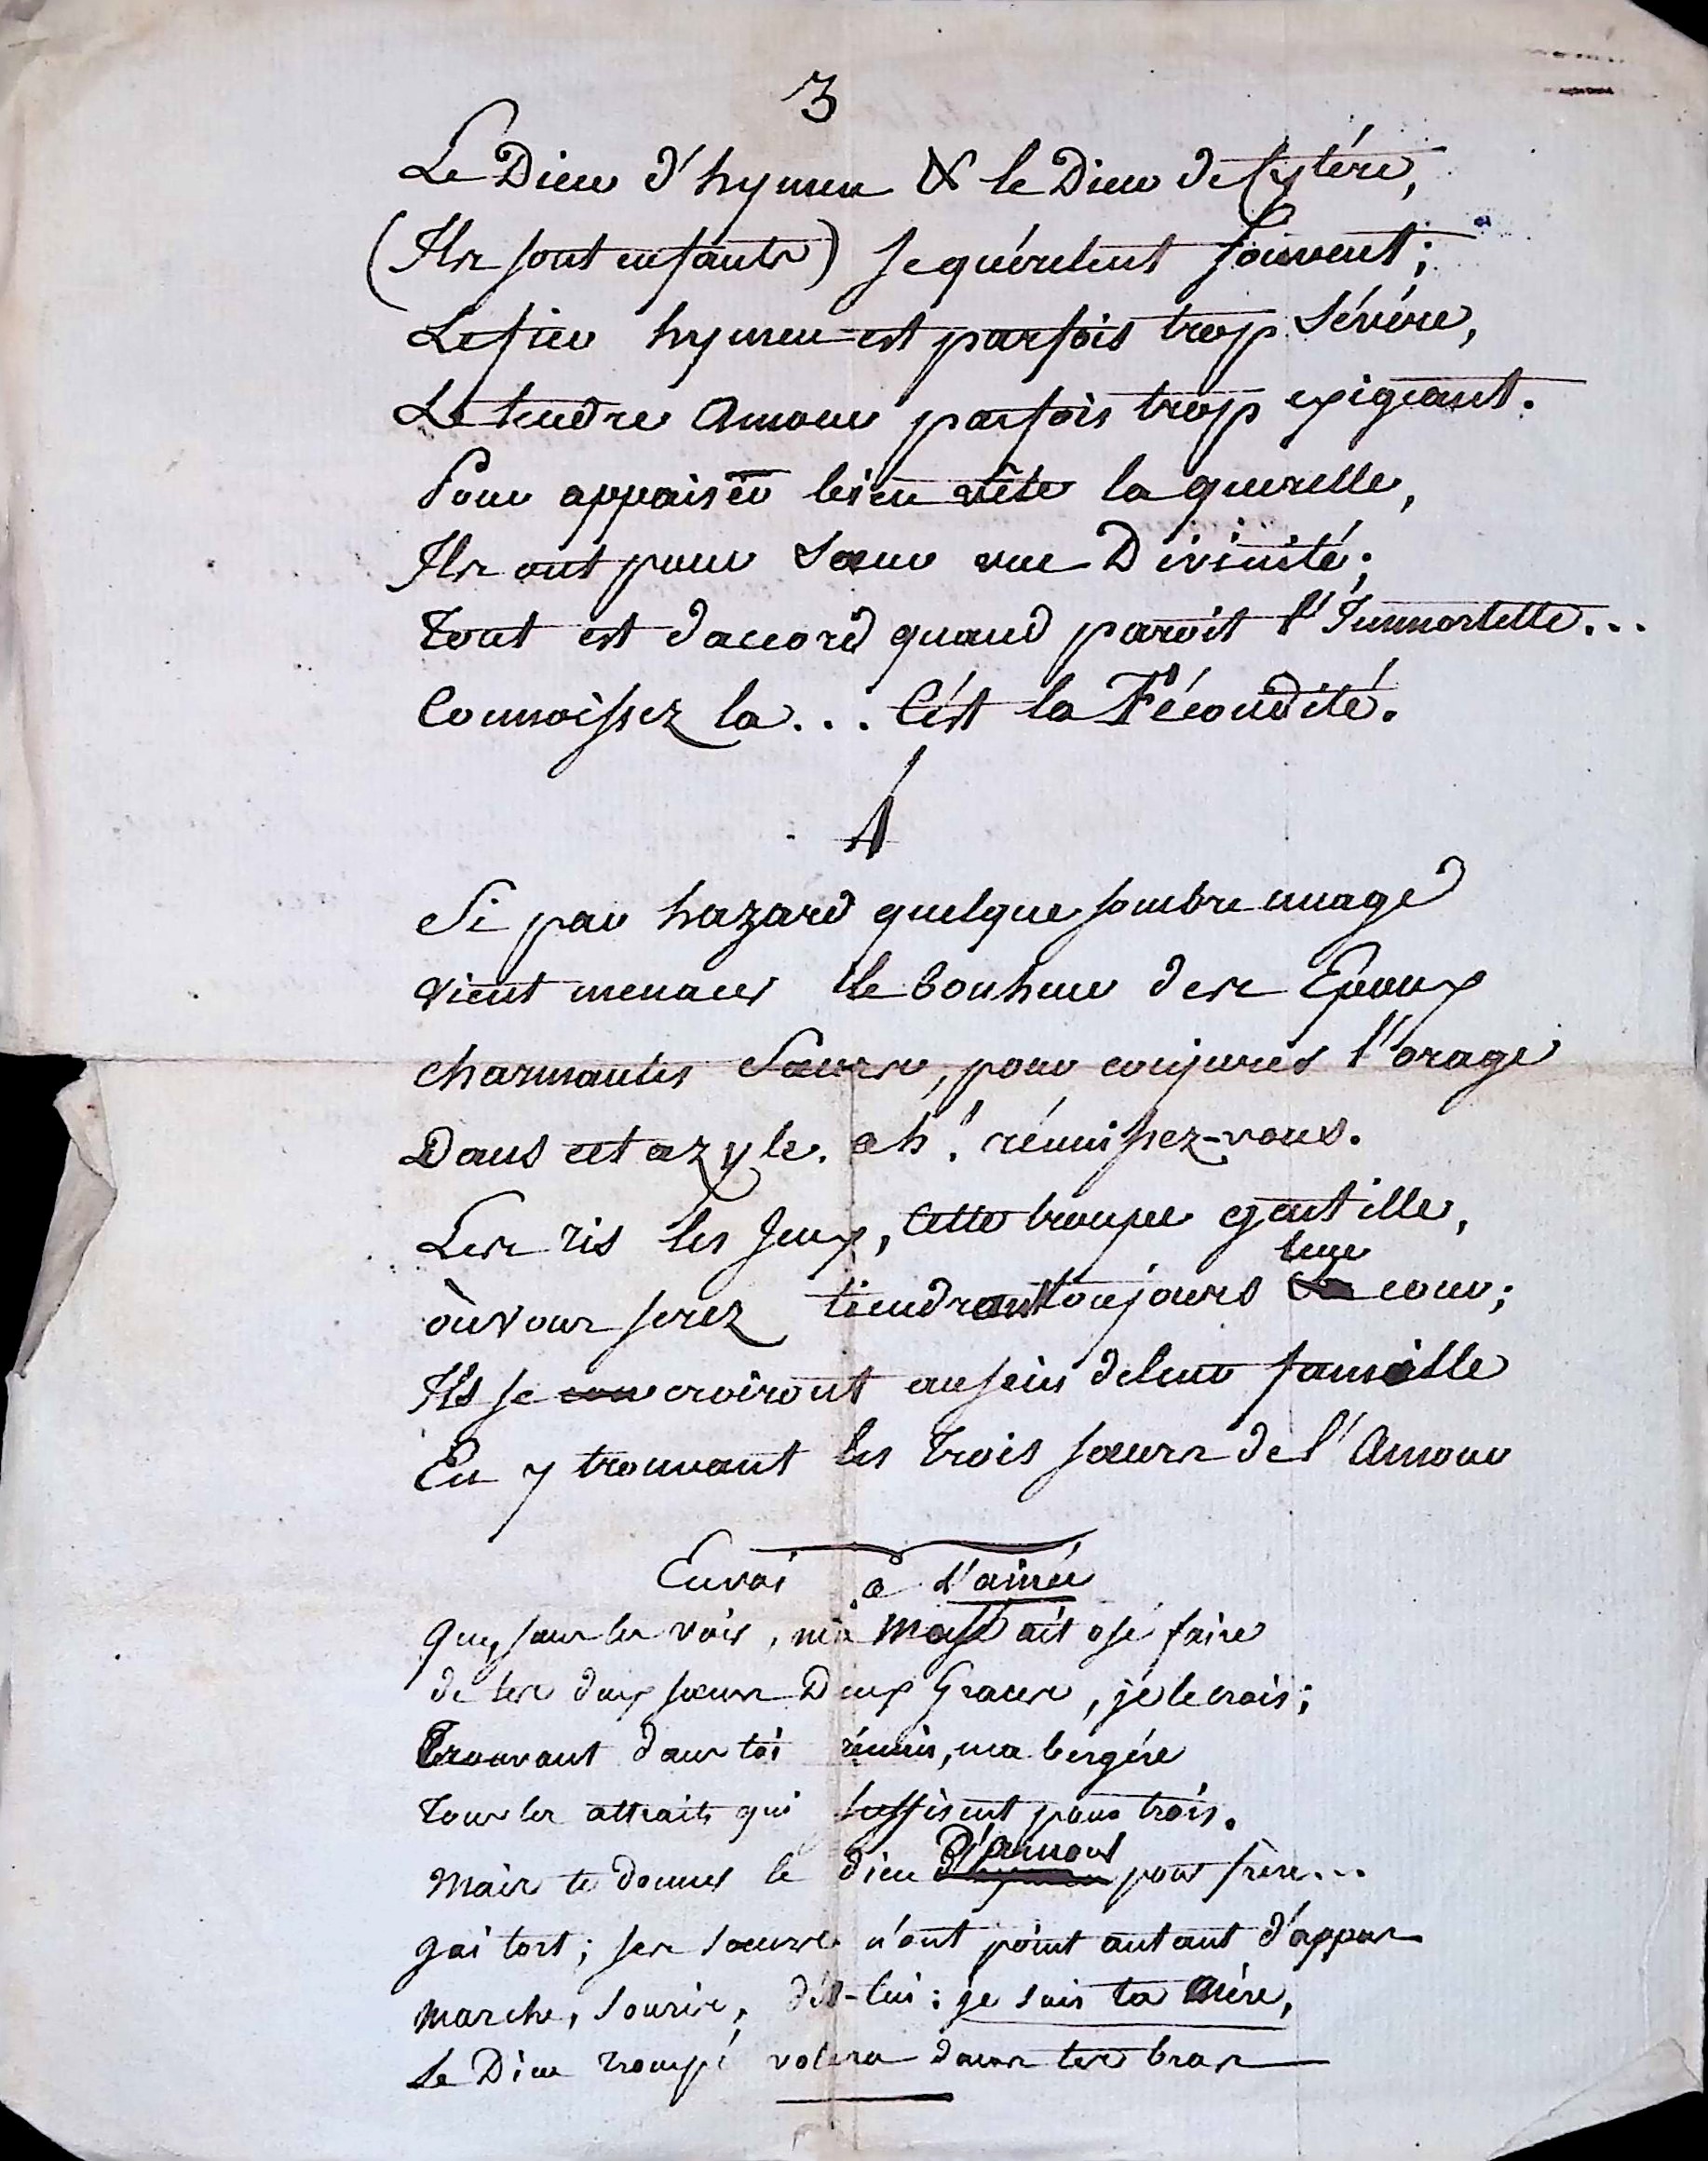 3
Le Dieu d'hymen & le Dieu de Cytére,
(Ils sont enfants) se quérelent souvent;
Le fier hymen est parfois trop sévére,
Le tendre Amour parfois trop exigeant.
Pour appaiser bien vîte la querelle,
Ils ont pour sœur une Divinité;
Tout est d'accord quand paroit l'Immortelle...
Connoissez la... C'ést la Fécondité.
4
Si par hazard quelque sombre nuage
vient menacer le bonheur des Epoux
charmantes Sœurs, pour conjurer l'orage
Dans cet azyle. ah! réunissez-vous.
Les ris les Jeux, cette troupe gentille,
où vous serez tiendront toujours leur cour;
Ils se croiront au sein de leur famille
En y trouvant les trois sœurs de l'Amour
Envoi a l'ainée
Que, sans les voir, ma Muse ait osé faire
de tes deux sœurs Deux Graces, je le crois;
Trouvant dans toi réunis, ma bergére
Tous les attraits qui suffisent pour trois.
Mais te donner le dieu D'Amour pour frere...
J'ai tort; ses sœurs n'ont point autant d'appas
marche, souris, dis-lui: je suis ta Mére,
Le Dieu trompé volera dans tes bras